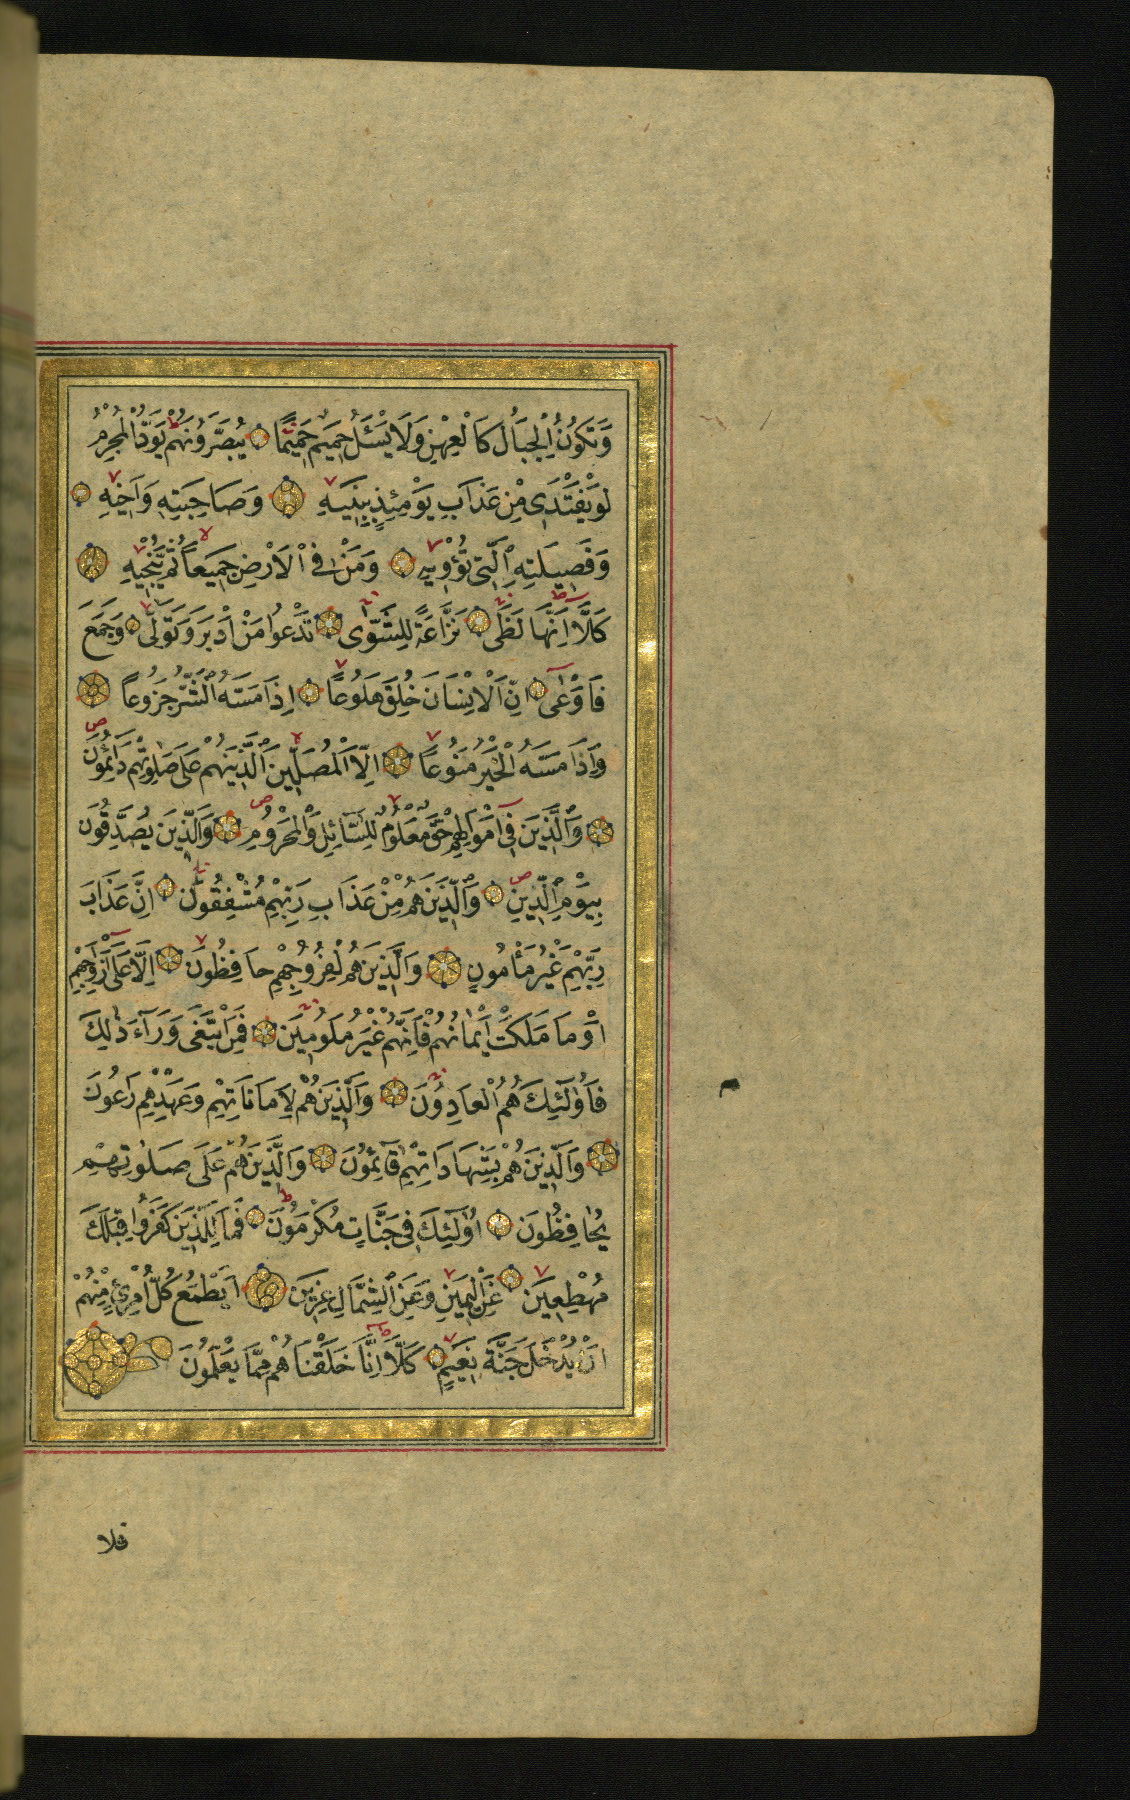 وَتَكُونُ الْجِبَالُ كَالْعِهْنِ وَلَا يَسْئَلُ حَمِيمٌ حَمِيمًا يُبَصَّرُونَهُمْ يَوَدُّ الْمُجْرِمُ
لَوْ يَفْتَدِى مِنْ عَذَابِ يَوْمِئِذٍ بِبَنِيهِ وَصَاحِبَتِهِ وَاَخِيهِ
وَفَصِيلَتِهِ الَّتِى تُؤْوِيهِ وَمَنْ فِى الْاَرْضِ جَمِيعًا ثُمَّ يُنْجِيهِ
كَلَّا اِنَّهَا لَظَى نَزَّاعَةً لِلشَّوٰى تَدْعُوا مَنْ اَدْبَرَ وَتَوَلَّى وَجَمَعَ
فَاَوْعٰى اِنَّ الْاِنْسَانَ خُلِقَ هَلُوعًا اِذَا مَسَّهُ الشَّرُّ جَزُوعًا
وَاِذَا مَسَّهُ الْخَيْرُ مَنُوعًا اِلَّا الْمُصَلِّينَ الَّذِينَ هُمْ عَلٰى صَلٰوتِهِمْ دَائِمُونَ
وَالَّذِينَ فِى اَمْوٰلِهِمْ حَقٌّ مَعْلُومٌ لِلسَّائِلِ وَالْمَحْرُومِ وَالَّذِينَ يُصَدِّقُونَ
بِيَوْمِ الدِّينِ وَالَّذِينَ هُمْ مِنْ عَذَابِ رَبِّهِمْ مُشْفِقُونَ اِنَّ عَذَابَ
رَبِّهِمْ غَيْرُ مَأْمُونٍ وَالَّذِينَ هُمْ لِفُرُوجِهِمْ حَافِظُونَ اِلَّا عَلٰى اَزْوٰجِهِمْ
اَوْ مَا مَلَكَتْ اَيْمَانُهُمْ فَاِنَّهُمْ غَيْرُ مَلُومِينَ فَمَنِ ابْتَغٰى وَرَآءَ ذٰلِكَ
فَاُولٰٓئِكَ هُمُ الْعَادُونَ وَالَّذِينَ هُمْ لِاَمَانَاتِهِمْ وَعَهْدِهِمْ رَاعُونَ
وَالَّذِينَ هُمْ بِشَهَادَاتِهِمْ قَآئِمُونَ وَالَّذِينَ هُمْ عَلَى صَلٰوتِهِمْ
يُحَافِظُونَ اُولٰٓئِكَ فِى جَنَّاتٍ مُكْرَمُونَ فَمَالِ الَّذِينَ كَفَرُوا قِبَلَكَ
مُهْطِعِينَ عَنِ الْيَمِينِ وَعَنِ الشِّمَالِ عِزِينَ اَيَطْمَعُ كُلُّ امْرِئٍ مِنْهُمْ
اَنْ يُدْخَلَ جَنَّةَ نَعِيمٍ كَلَّا اِنَّا خَلَقْنَاهُمْ مِمَّا يَعْلَمُونَ
فلا